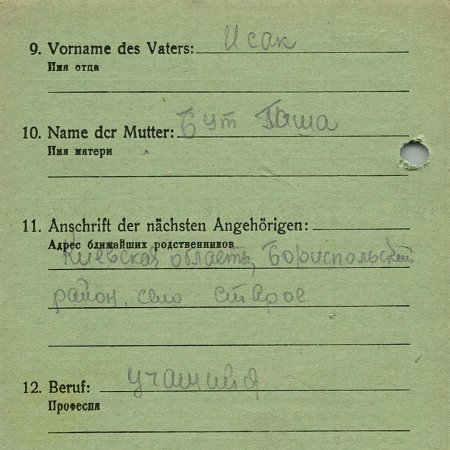 9. Vorname des Vaters: Исак
Имя отца
10. Name der Mutter: Бут Паша
Имя мятери
11. Anschrift der nächsten Angehörigen:
Адрес ближайших родственников
Киевская область, Бориспольский
район, село старое
12. Beruf:
Професия